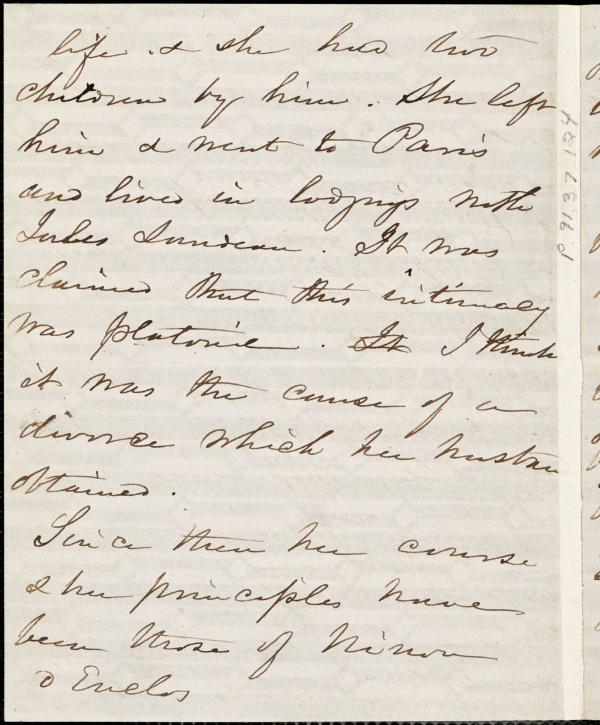 life. & she had two
children by him. She left
him & went to Paris
and lived in lodgings with
Jules Sandeau. It was
claimed that this intimacy
was platonic. It I think
it was the cause of a
divorce which her husban
obtained.
Since then her course
& her principles have
been those of Ninon
d Enclos
p 91.37.184